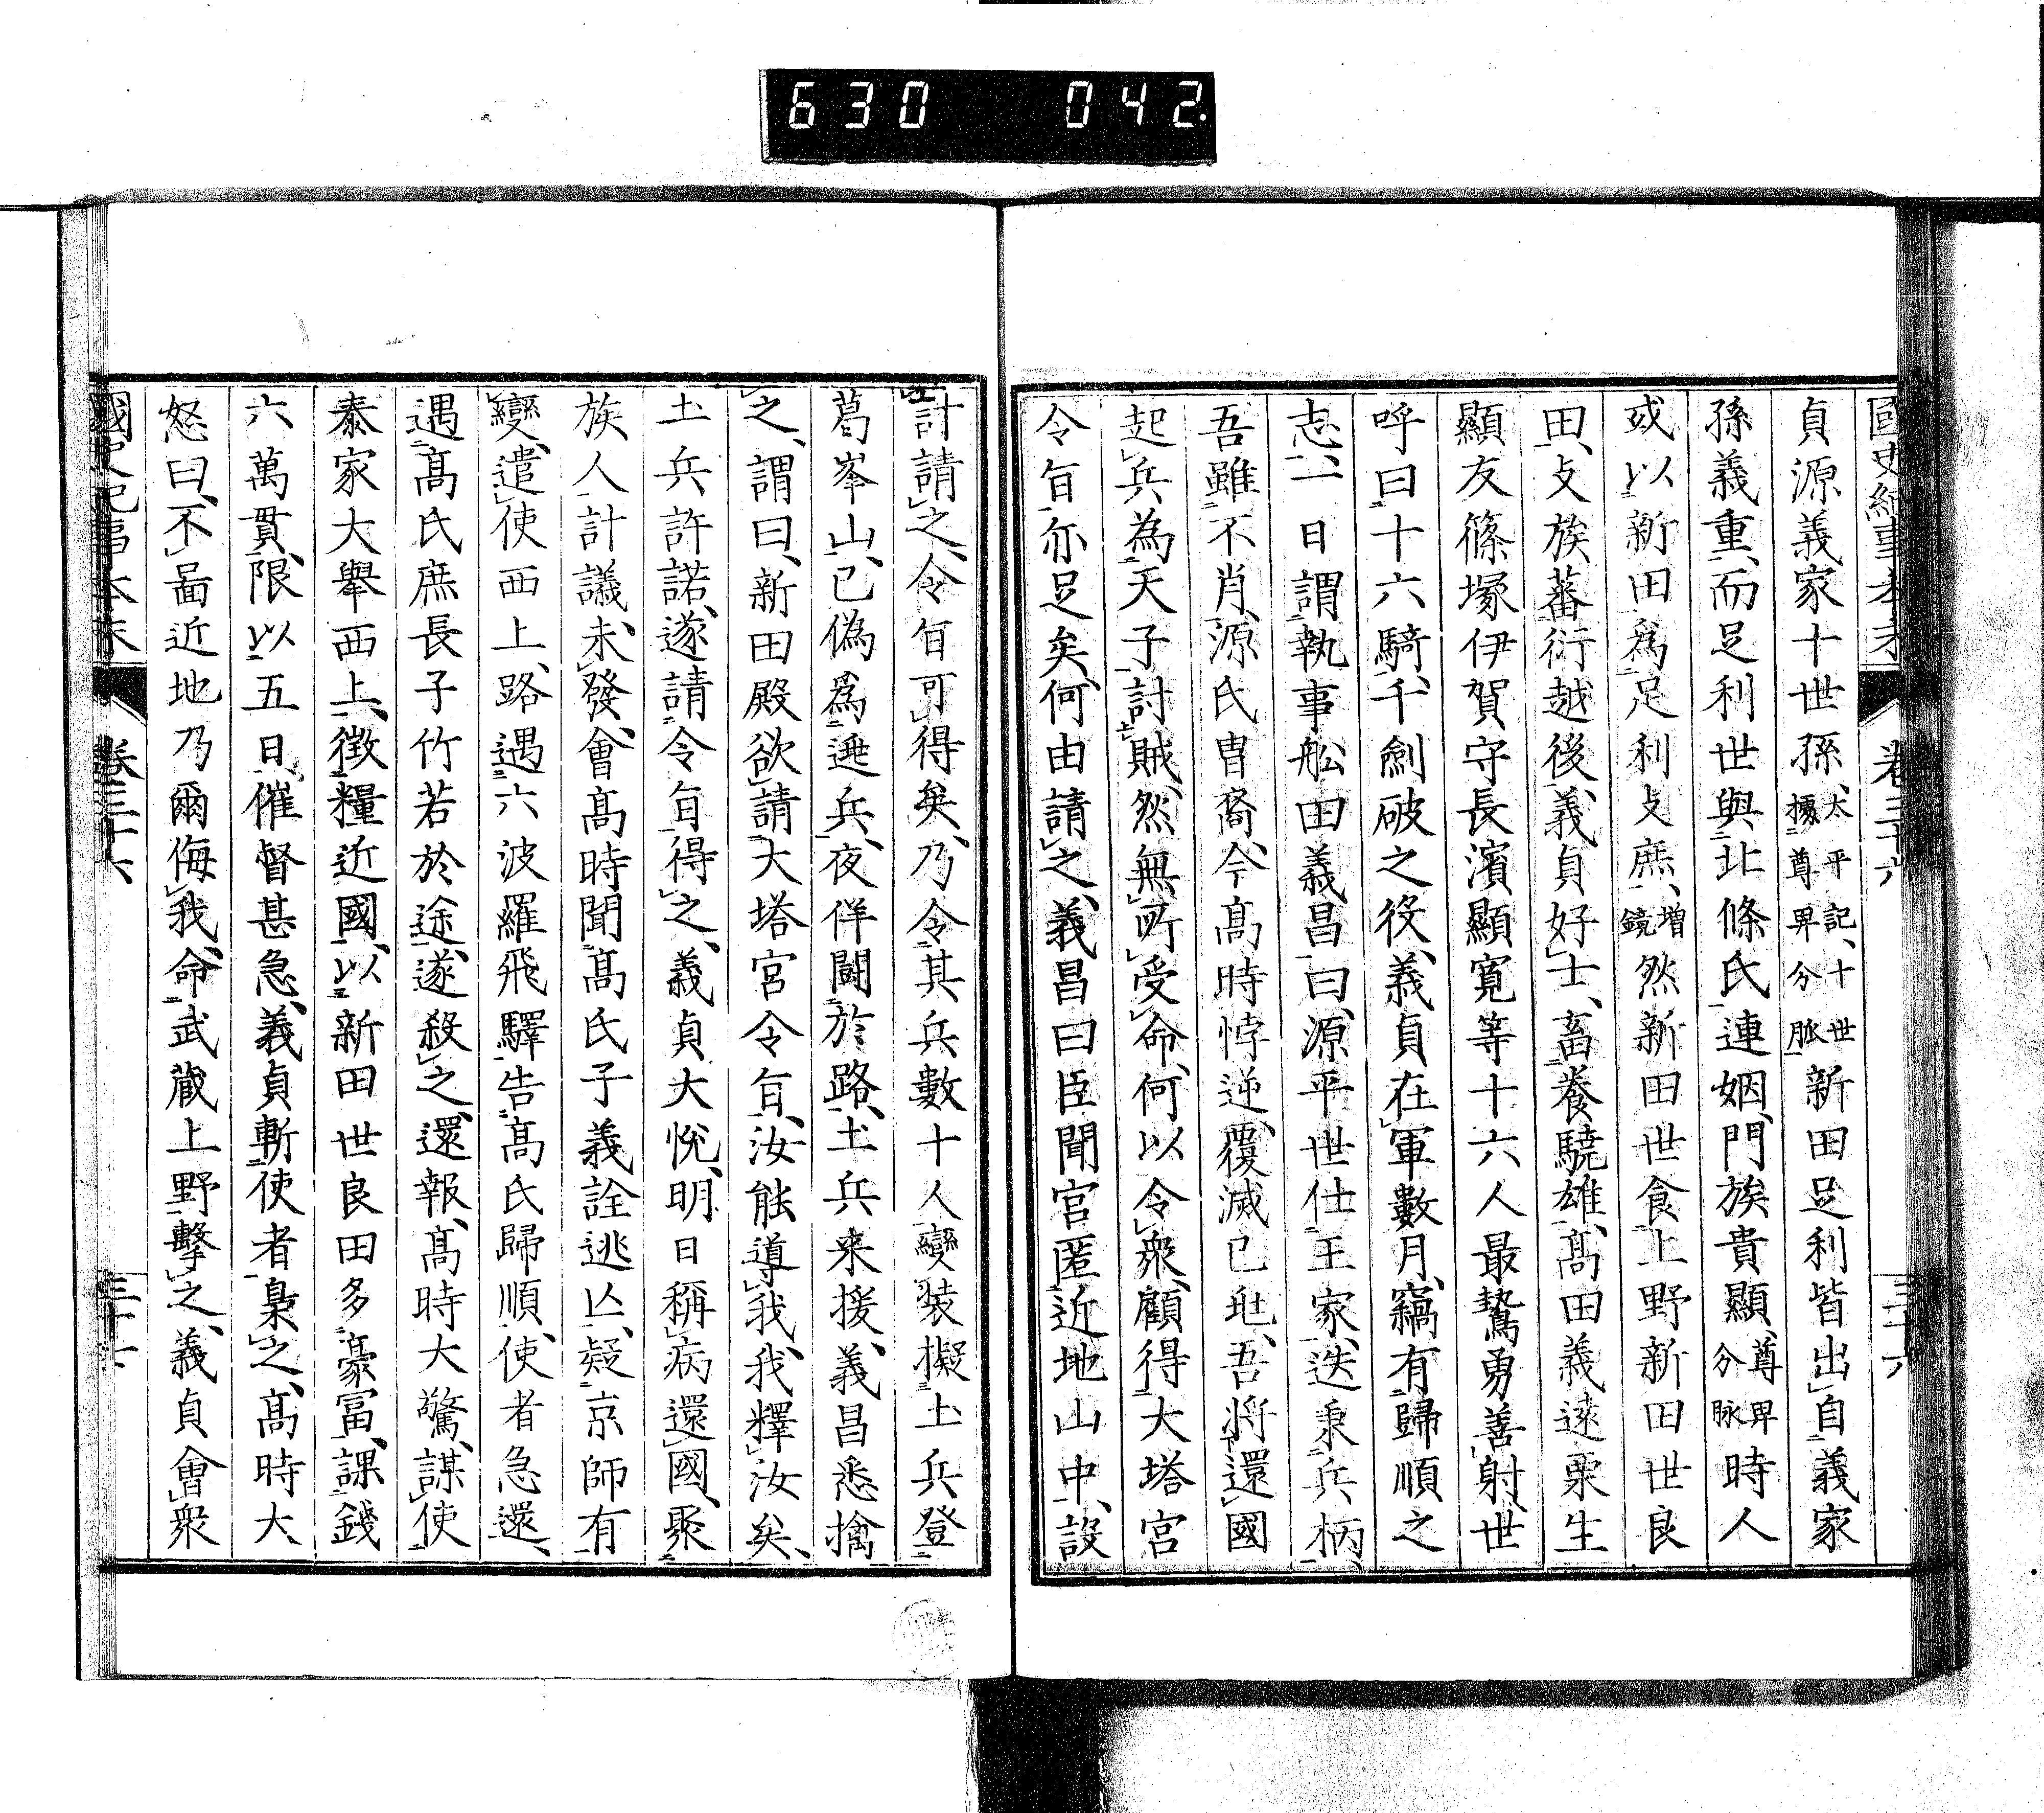 630 042.
國史紀事本末 卷三十六 三十六
貞源義家十世孫、太平記、十世據尊卑分脈新田足利皆出自義家
孫義重、而足利世與北條氏連姻、門族貴顯、尊卑分脉時人
或以新田爲足利支庶、增鏡然新田世食上野新田世良
田、支族蕃衍越後、義貞好士、畜養驍雄、高田義遠栗生
顯友篠塚伊賀守長濱顯寬等十六人最驁勇善射、世
呼曰十六騎、千劍破之役、義貞在軍數月、竊有歸順之
志、一日謂執事舩田義昌曰、源平世仕王家、迭秉兵柄、
吾雖不肖、源氏冑裔、今高時悖逆、覆滅已兆、吾將還國
起兵為天子討賊、然無所受命、何以令衆、顧得大塔宮
令旨亦足矣、何由請之、義昌曰臣聞宮匿近地山中、設
計請之、令旨可得矣、乃令其兵數十人變裝擬土兵登
葛峯山、已偽爲遁兵、夜佯鬪於路、土兵来援、義昌悉擒
之、謂曰、新田殿欲請大塔宮令旨、汝能導我、我釋汝矣、
土兵許諾、遂請令旨得之、義貞大悅、明日稱病還國、聚
族人計議、未發、會高時聞高氏子義詮逃亾、疑京師有
變、遣使西上、路遇六波羅飛驛告高氏歸順、使者急還、
遇高氏庶長子竹若於途、遂殺之、還報、高時大驚、謀使
泰家大舉西上、徵糧近國、以新田世良田多豪冨、課錢
六萬貫、限以五日、催督甚急、義貞斬使者梟之、高時大
怒曰、不啚近地乃爾侮我、命武藏上野擊之、義貞會衆
國史紀事本末 卷三十六 三十七